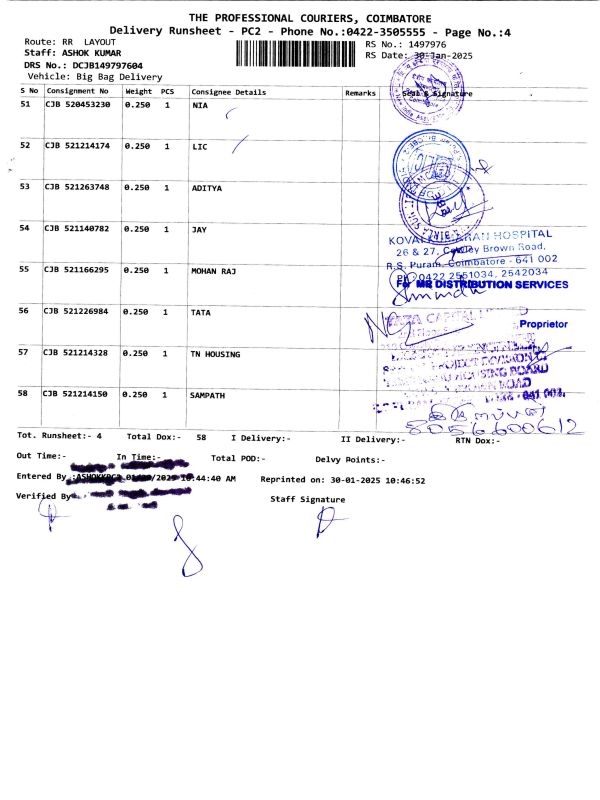 THE PROFESSIONAL COURIERS, COIMBATORE
Delivery Runsheet - PC2 - Phone No.:0422-3505555 - Page No.:4
Route: RR LAYOUT
RS No.: 1497976
Staff: ASHOK KUMAR
RS Date: 30-Jan-2025
DRS No.: DCJB149797604
Vehicle: Big Bag Delivery
S No Consignment No Weight PCS Consignee Details Remarks Seal & Signature
51 CJB 520453230 0.250 1 NIA
52 CJB 521214174 0.250 1 LIC
53 CJB 521263748 0.250 1 ADITYA
54 CJB 521140782 0.250 1 JAY
KOVAI HOSPITAL
26 & 27, Cowley Brown Road,
R.S. Puram, Coimbatore - 641 002
55 CJB 521166295 0.250 1 MOHAN RAJ
Ph: 0422 2551034, 2542034
For MR DISTRIBUTION SERVICES
56 CJB 521226984 0.250 1 TATA
TATA CAPITAL
Proprietor
57 CJB 521214328 0.250 1 TN HOUSING
HOUSING BOARD
ROAD
58 CJB 521214150 0.250 1 SAMPATH
641 002.
8056600612
Tot. Runsheet:- 4 Total Dox:- 58 I Delivery:- II Delivery:- RTN Dox:-
Out Time:- In Time:- Total POD:- Delvy Points:-
Entered By :44:40 AM Reprinted on: 30-01-2025 10:46:52
Verified By Staff Signature